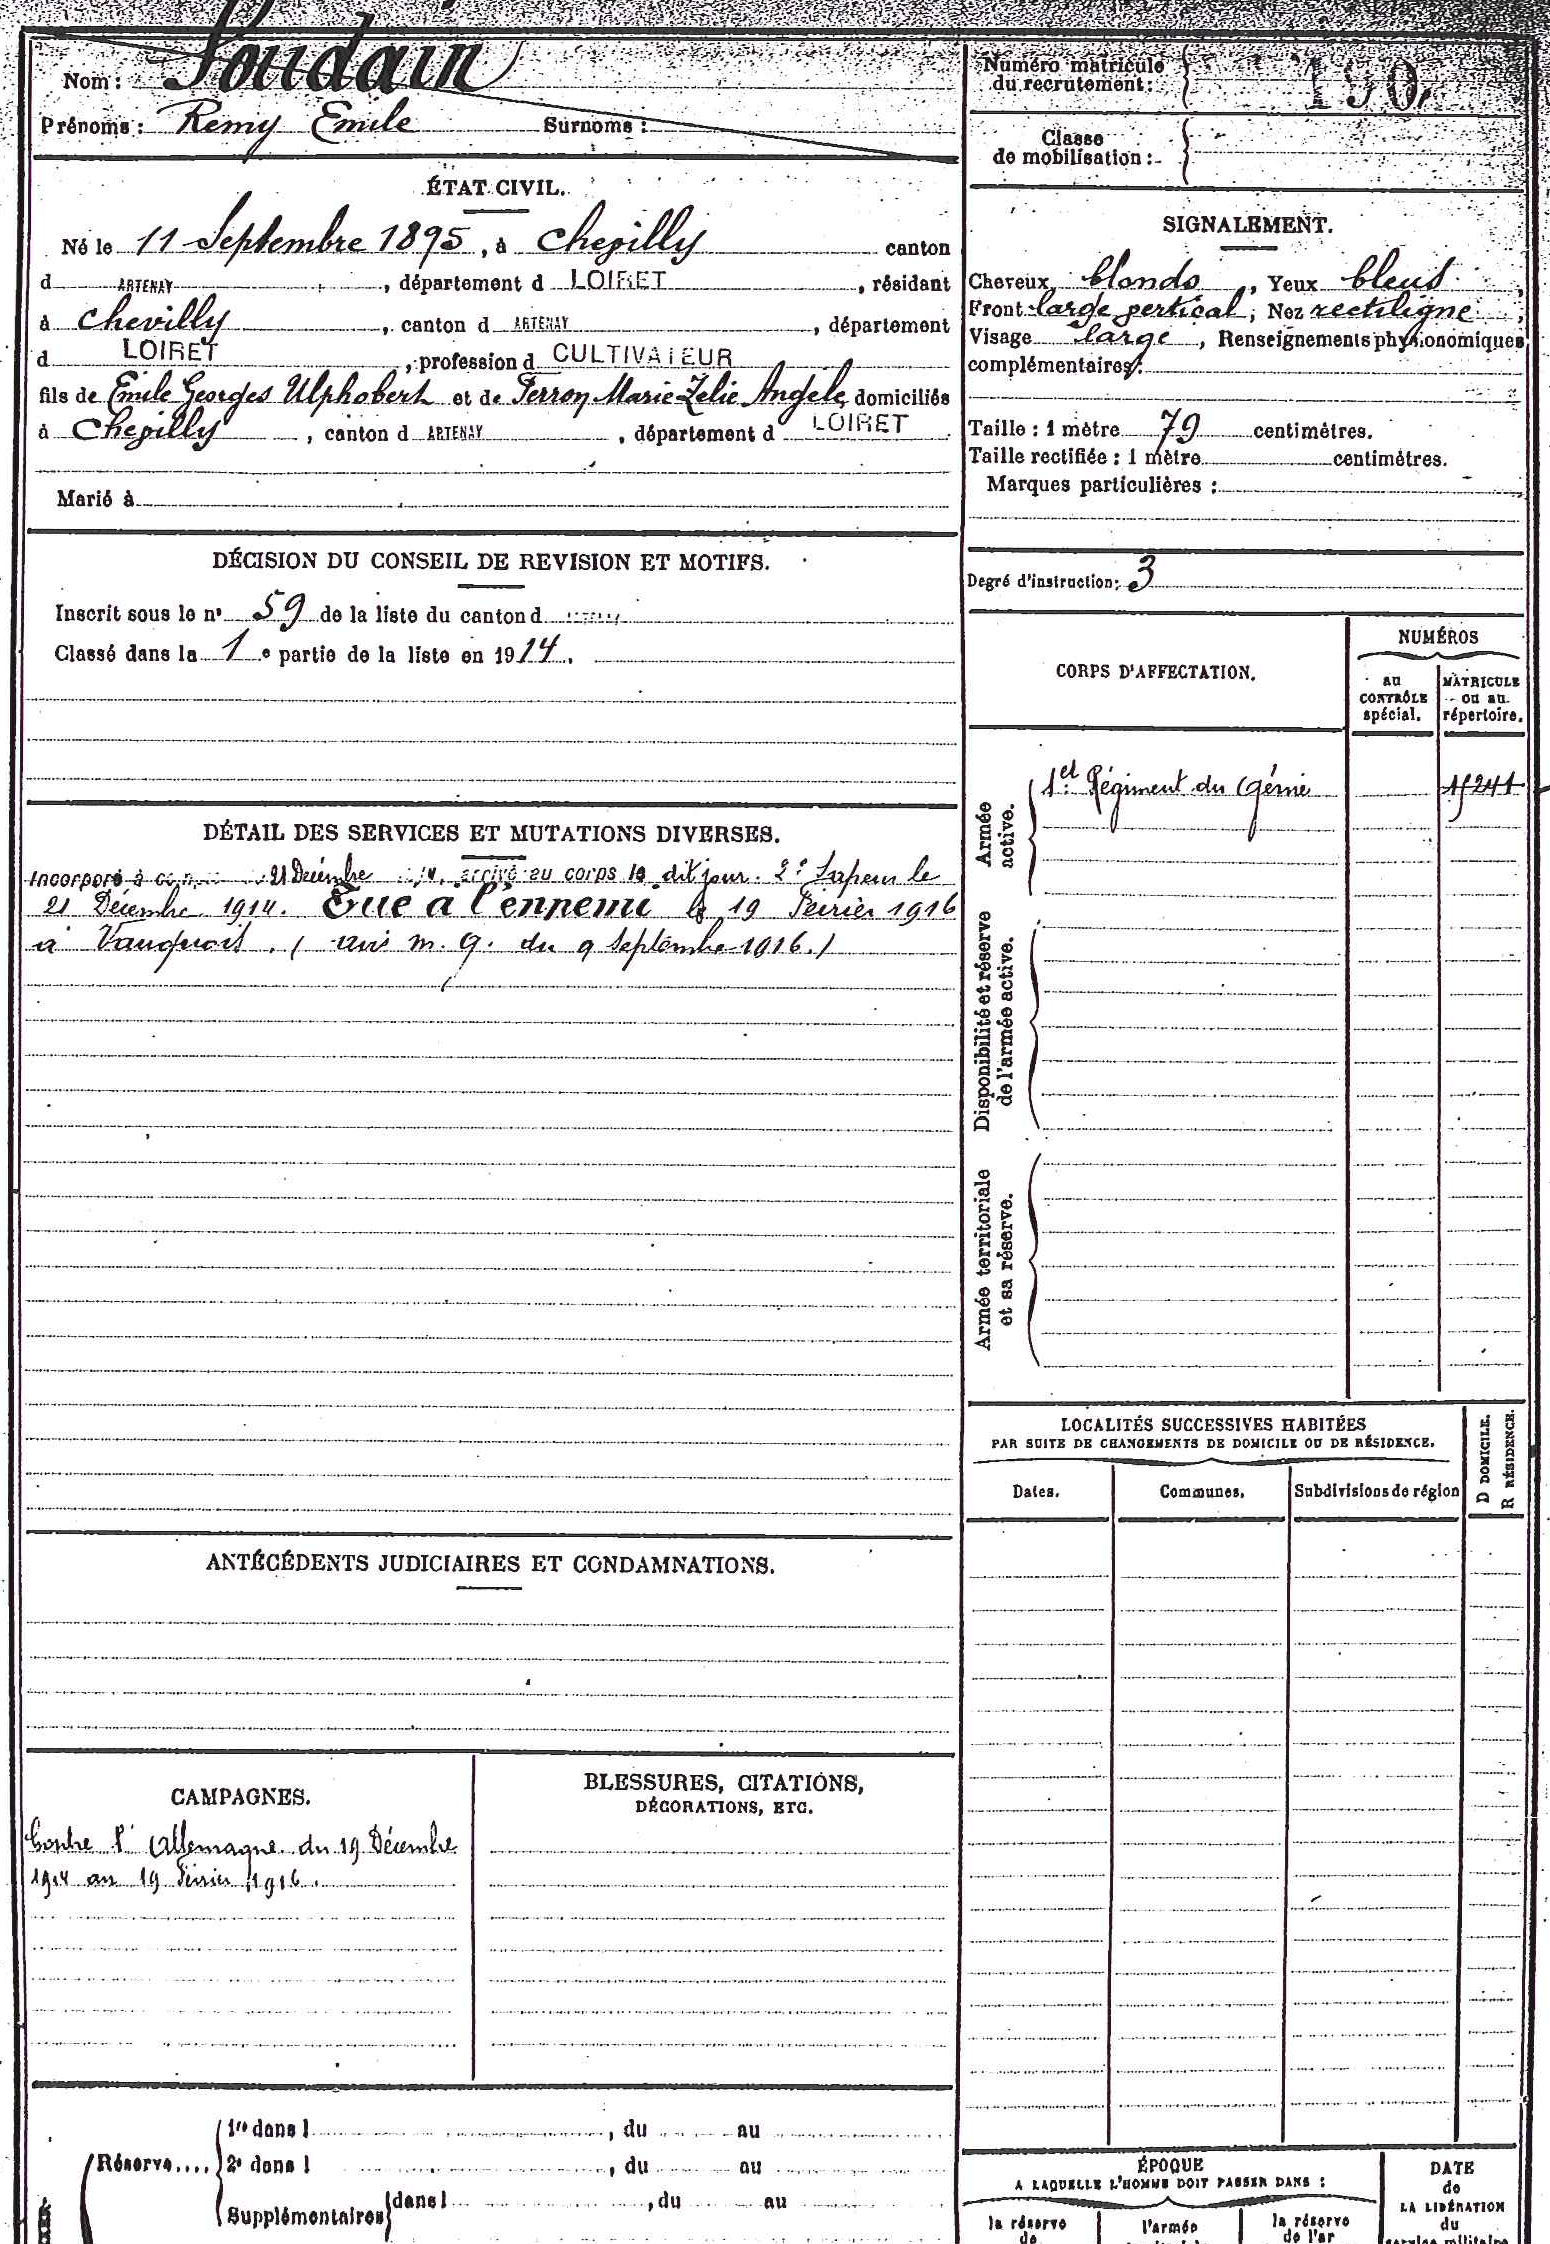 Nom : Soudain
Prénoms : Remy Emile Surnoms :
Numéro matricule
du recrutement :
190
Classe
de mobilisation :
ÉTAT CIVIL.
Né le 11 Septembre 1895, à Chevilly canton
d ARTENAY, département d LOIRET, résidant
à Chevilly, canton d ARTENAY, département
d LOIRET, profession d CULTIVATEUR
fils de Emile Georges Ulphobert et de Perron Marie Zelie Angele, domiciliés
à Chevilly, canton d ARTENAY, département d LOIRET
Marié à
SIGNALEMENT.
Cheveux blonds, Yeux bleus,
Front large vertical; Nez rectiligne;
Visage large, Renseignements physionomiques
complémentaires:
Taille : 1 mètre 79 centimètres.
Taille rectifiée : 1 mètre centimètres.
Marques particulières :
Degré d'instruction: 3
DÉCISION DU CONSEIL DE REVISION ET MOTIFS.
Inscrit sous le n° 59 de la liste du canton d
Classé dans la 1e partie de la liste en 1914.
CORPS D'AFFECTATION.
NUMÉROS
au
CONTRÔLE
spécial.
MATRICULE
ou au
répertoire.
Armée
active.
1er Régiment du Génie
15241
Disponibilité et réserve
de l'armée active.
Armée territoriale
et sa réserve.
DÉTAIL DES SERVICES ET MUTATIONS DIVERSES.
Incorporé à 21 Décembre arrivé au corps le dit jour. 2e Sapeur le
21 Décembre 1914. Tué à l'ennemi le 19 Février 1916
à Vauquois. (avis m. G. du 9 Septembre 1916.)
LOCALITÉS SUCCESSIVES HABITÉES
PAR SUITE DE CHANGEMENTS DE DOMICILE OU DE RÉSIDENCE.
D DOMICILE.
R RÉSIDENCE.
Dates. Communes. Subdivisions de région
ANTÉCÉDENTS JUDICIAIRES ET CONDAMNATIONS.
CAMPAGNES.
Contre l'Allemagne du 19 Décembre
1914 au 19 Février 1916.
BLESSURES, CITATIONS,
DÉCORATIONS, ETC.
Réserve....
1re dans l , du au
2e dans l , du au
Supplémentaires dans l , du au
ÉPOQUE
A LAQUELLE L'HOMME DOIT PASSER DANS :
la réserve
de
l'armée
la réserve
de l'ar
DATE
de
LA LIBÉRATION
du
service militaire